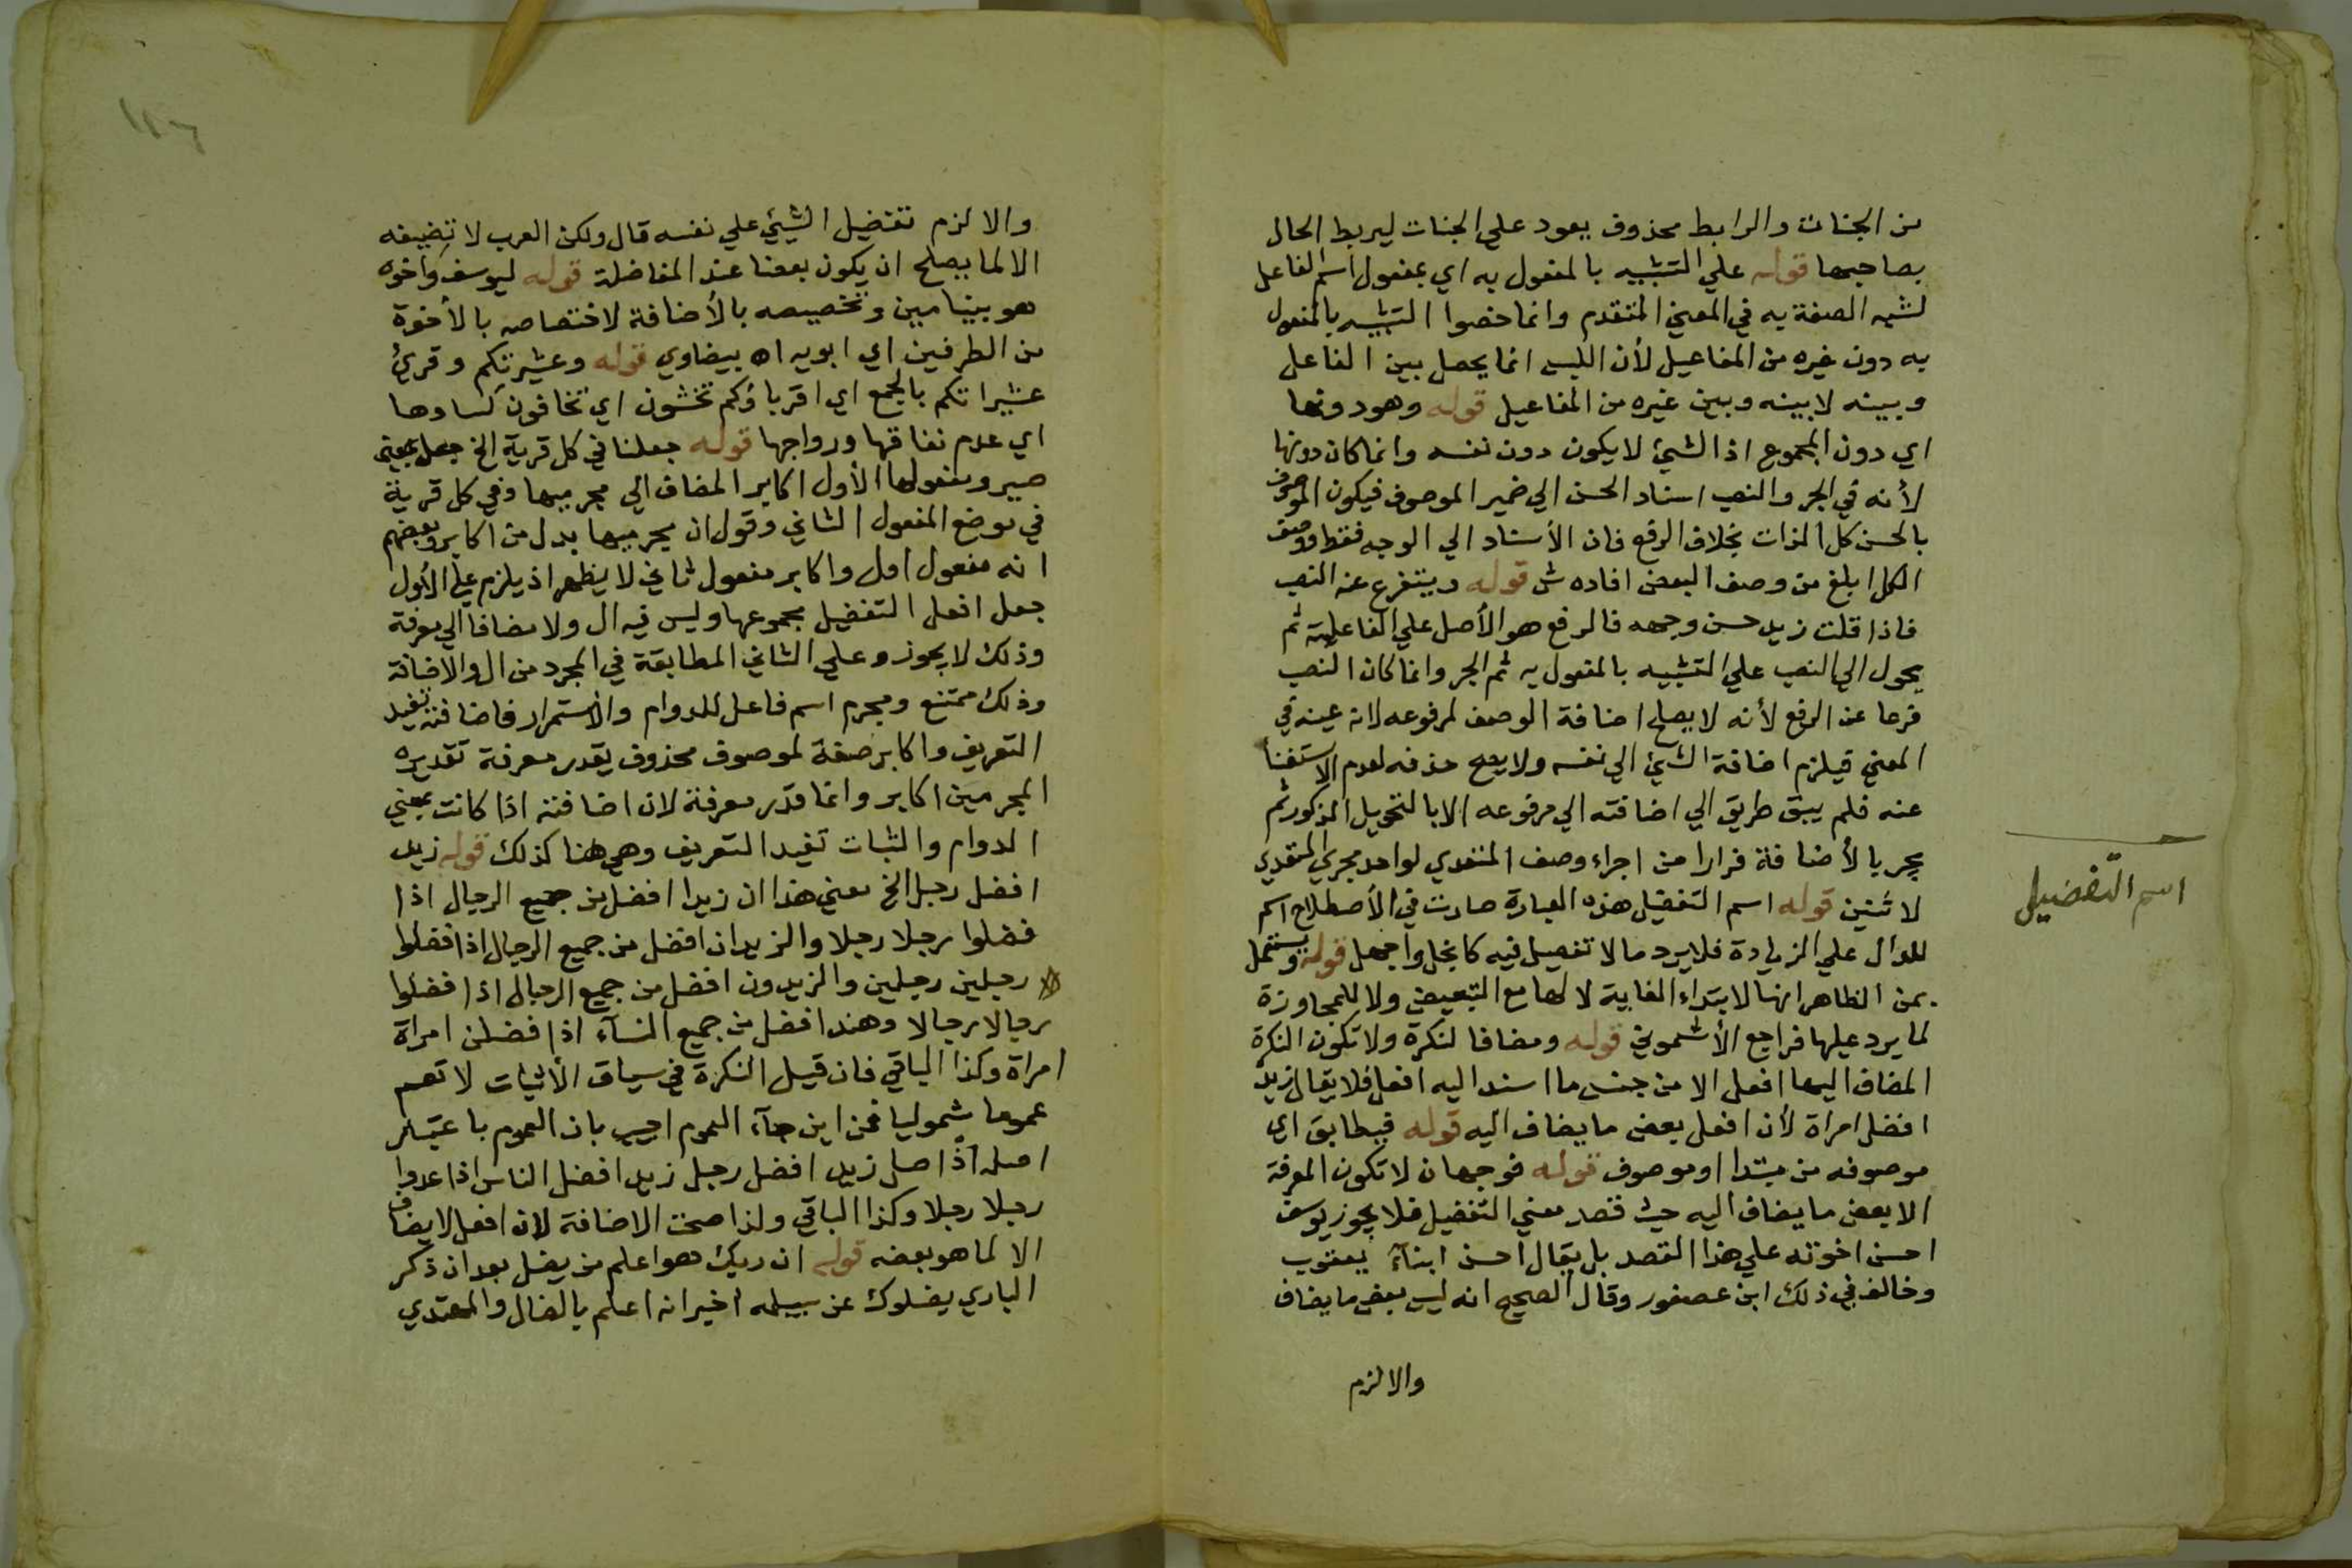 من الجنات والرابط محذوف يعود علي الجنات ليربط الحال
بصاحبها قوله علي التشبيه بالمفعول به اي بمفعول اسم الفاعل
لشبه الصفة به في المعني المتقدم وانما خصوا التشبيه بالمفعول
به دون غيره من المفاعيل لأن اللبس انما يحصل بين الفاعل
وبينه لا بينه وبين غيره من المفاعيل قوله وهو دونها
اي دون المجموع اذ الشيئ لا يكون دون نفسه وانما كان دونها
لأنه في الجر والنصب اسناد الحسن الي ضمير الموصوف فيكون الموصوف
بالحسن كل الذات بخلاف الرفع فان الأسناد الي الوجه فقط ووصف
الكل ابلغ من وصف البعض افاده ش قوله ويتفرع عنه النصب
فاذا قلت زيد حسن وجهه فالرفع هو الأصل علي الفاعلية ثم
يحول الي النصب علي التشبيه بالمفعول به ثم الجر وانما كان النصب
فرعا عن الرفع لأنه لا يصلح اضافة الوصف لمرفوعه لانه عينه في
المعني فيلزم اضافة الشيئ الي نفسه ولا يصح حذفه لعدم الاستغنا
عنه فلم يبق طريق الي اضافته الي مرفوعه الا بالتحويل المذكور ثم
يجر بالأضافة فرارا من اجراء وصف المتعدي لواحد مجري المتعدي
لاثنين قوله اسم التفضيل هذه العبارة صارت في الأصطلاح اسم
للدال علي الزيادة فلا يرد ما لا تفضيل فيه كابخل واجهل قوله ويستعمل
بمن الظاهر انها لابتداء الغاية لا لها مع التبعيض ولا للمجاوزة
لما يرد عليها فراجع الأشموني قوله ومضافا لنكرة ولا تكون النكرة
المضاف اليها افعل الا من جنس ما اسند اليه افعل فلا يقال زيد
افضل امراة لأن افعل بعض ما يضاف اليه قوله فيطابق اي
موصوفه من مبتدا او موصوف قوله فوجهان لا تكون المعرفة
الا بعض ما يضاف اليه حيث قصد معني التفضيل فلا يجوز يوسف
احسن اخوته علي هذا القصد بل يقال احسن ابنآء يعقوب
وخالف في ذلك ابن عصفور وقال الصحيح انه ليس بعض ما يضاف
والا لزم
اسم التفضيل
١١٦
والا لزم تفضيل الشيئ علي نفسه قال ولكن العرب لا تضيفه
الا لما يصلح ان يكون بعضا عند المفاضلة قوله ليوسف واخوه
هو بنيامين وتخصيصه بالأضافة لاختصاصه بالأخوة
من الطرفين اي ابويه اه بيضاوي قوله وعشيرتكم وقرئ
عشيراتكم بالجمع اي اقرباؤكم تخشون اي تخافون كسادها
اي عدم نفاقها ورواجها قوله جعلنا في كل قرية الخ جعل بمعني
صير ومفعولها الأول اكابر المضاف الي مجرميها وفي كل قرية
في موضع المفعول الثاني وقول ان مجرميها بدل من اكابر وبعضهم
انه مفعول اول واكابر مفعول ثاني لا يظهر اذ يلزم علي الأول
جعل افعل التفضيل مجموعها وليس فيه ال ولا مضافا الي معرفة
وذلك لا يجوز وعلي الثاني المطابقة في المجرد من ال والاضافة
وذلك ممتنع ومجرم اسم فاعل للدوام والأستمرار فاضافته تفيد
التعريف واكابر صفة لموصوف محذوف يقدر معرفة تقديره
المجرمين اكابر وانما قدر معرفة لان اضافته اذا كانت بمعني
الدوام والثبات تفيد التعريف وهي هنا كذلك قوله زيد
افضل رجل الخ معني هذا ان زيدا افضل من جميع الرجال اذا
فضلوا رجلا رجلا والزيدان افضل من جميع الرجال اذا فضلوا
رجلين رجلين والزيدون افضل من جميع الرجال اذا فضلوا
رجالا رجالا وهند افضل من جميع النسآء اذا فضلن امراة
امراة وكذا الباقي فان قيل النكرة في سياق الأثبات لا تعم
عموما شموليا فمن اين جآء العموم اجيب بان العموم باعتبار
اصله اذ اصل زيد افضل رجل زيد افضل الناس اذا عدوا
رجلا رجلا وكذا الباقي ولذا صحت الاضافة لان افعل لا يضاف
الا لما هو بعضه قوله ان ربك هو اعلم من يضل بعد ان ذكر
الباري يضلوك عن سبيله اخبر انه اعلم بالضال والمهتدي